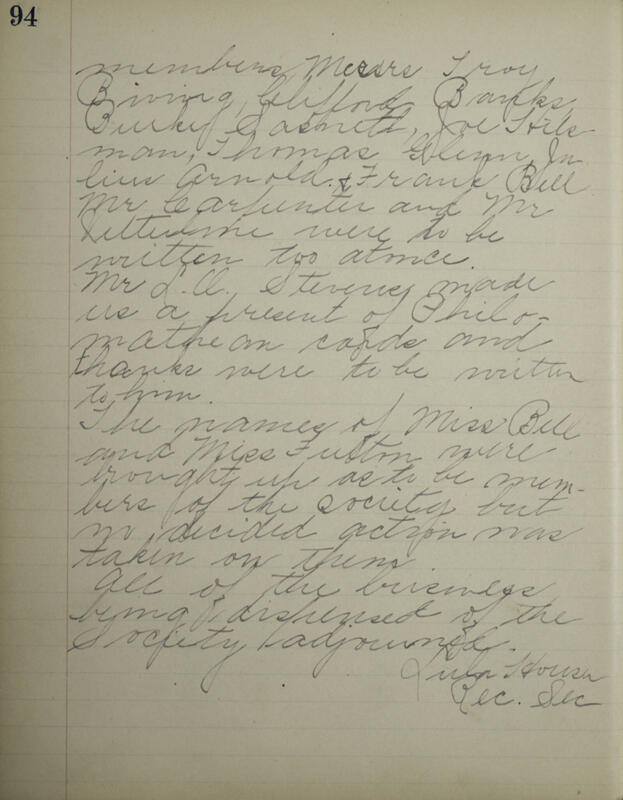 94
members Messrs Troy
Bivins, Clifford Banks,
Burke Sasnett, Joe Hils-
man, Thomas Glenn, Ju-
lius Arnold & Frank Bell
Mr Carpenter and Mr
were to be
written too atonce.
Mr L.A. Stevens made
us a present of Philo-
mathean cards and
thanks were to be written
to him.
The names of Miss Bell
and Miss Fulton were
brought up as to be mem-
bers of the society but
no decided action was
taken on them
All of the business
being dispensed of the
Society adjourned.
Lula House
Rec. Sec